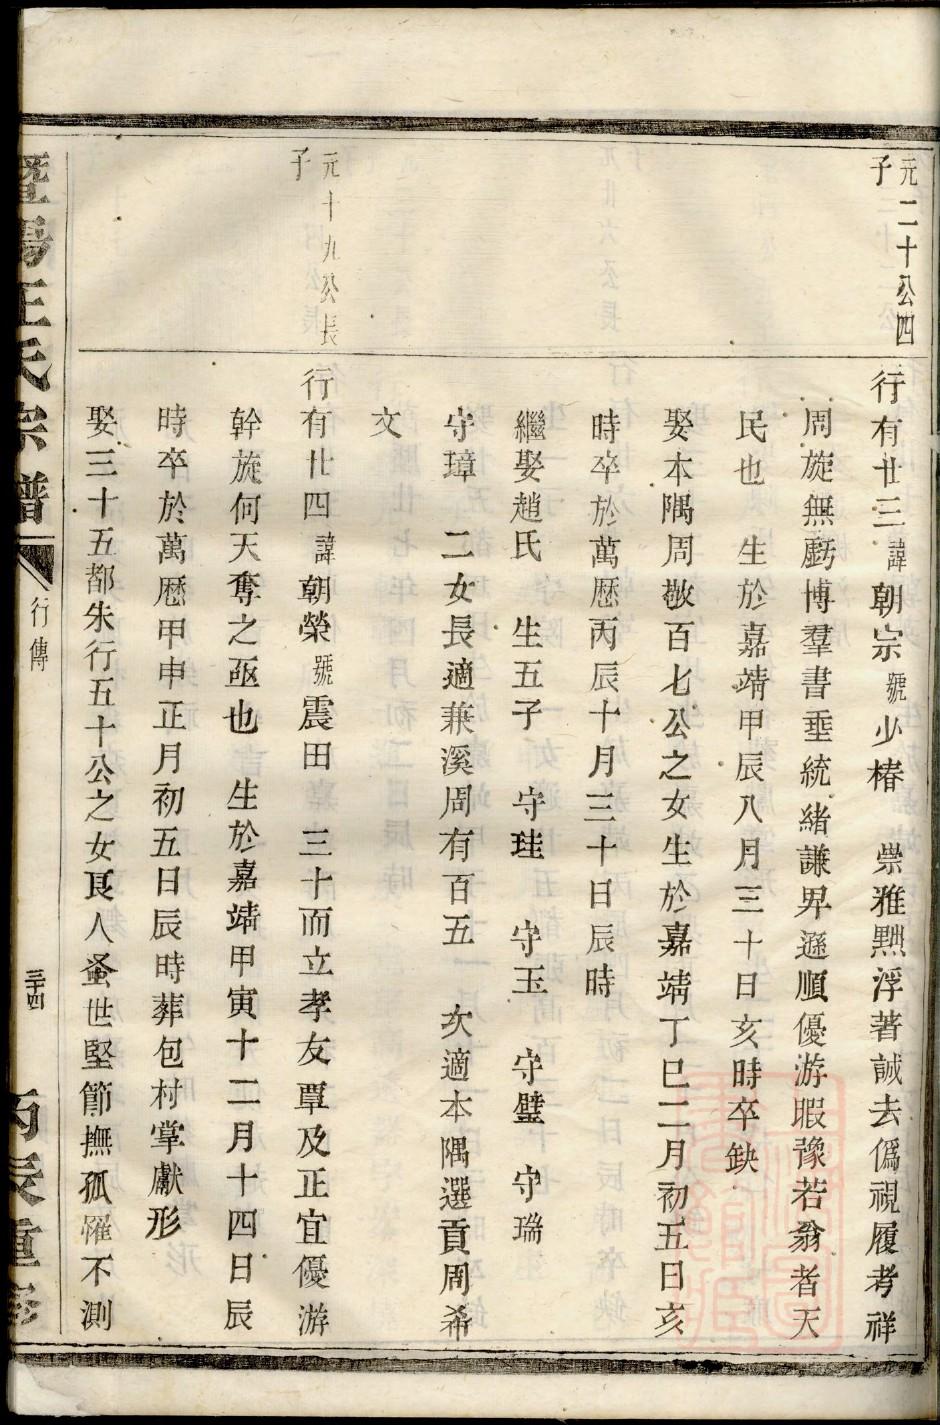 元二十公四
子
行有廿三諱朝宗號少椿　崇雅黜浮著誠去僞視履考祥
周旋無虧博羣書垂統緒謙畀遜順優游暇豫若翁者天
民也　生於嘉靖甲辰八月三十日亥時卒缺
娶本隅周敬百七公之女生於嘉靖丁巳二月初五日亥
時卒於萬歷丙辰十月三十日辰時
繼娶趙氏　生五子　守珪　守玉　守璧　守瑞
守璋　二女長適蒹溪周有百五　次適本隅選貢周希
文
元十九公長
子
行有廿四諱朝榮號震田　三十而立孝友覃及正宜優游
幹旋何天奪之亟也　生於嘉靖甲寅十二月十四日辰
時卒於萬歷甲申正月初五日辰時葬包村掌獻形
娶三十五都朱行五十公之女良人蚤世堅節撫孤罹不測
暨陽王氏宗譜
行傳
三十四
丙辰重修